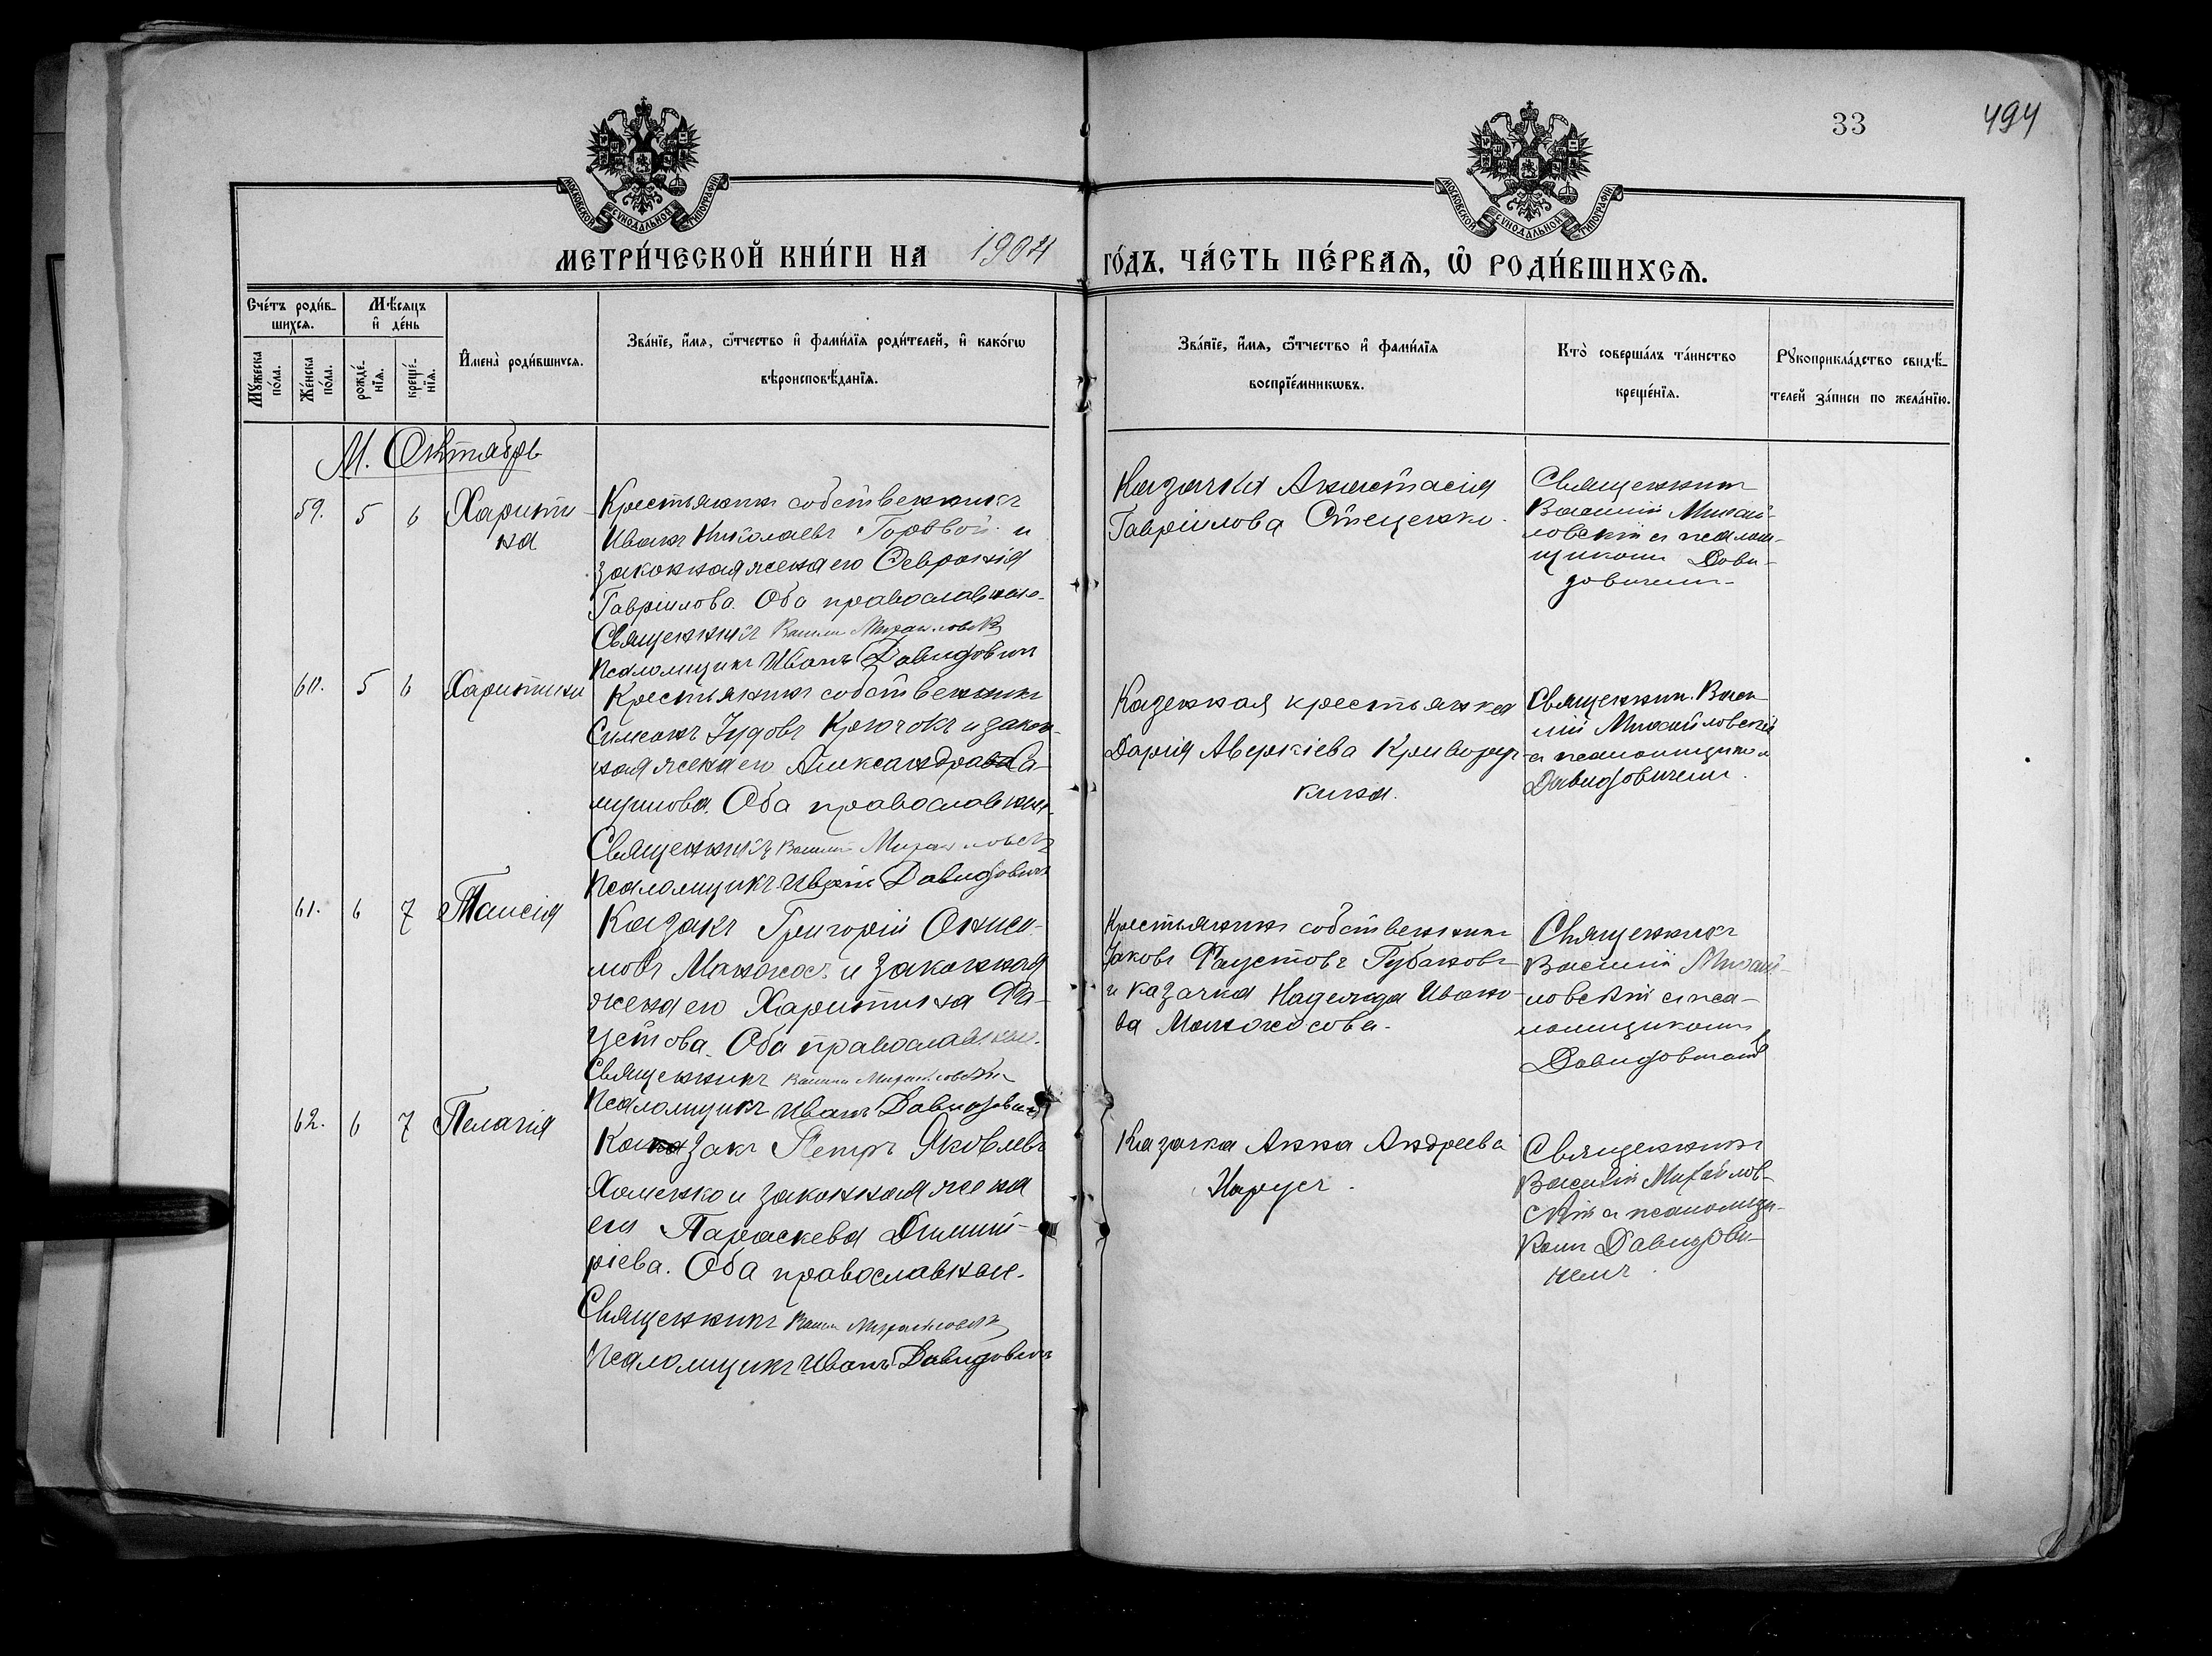 33
494
МОСКОВСКОЙ СѴНОДАЛЬНОЙ ТИПОГРАФІИ
МОСКОВСКОЙ СѴНОДАЛЬНОЙ ТИПОГРАФІИ
МЕТРИ́ЧЕСКОЙ КНИ́ГИ НА 1904 ГО́ДЪ, ЧА́СТЬ ПЕ́РВАѦ, Ѽ РОДИ́ВШИХСѦ.
Сче́тъ роди́в-
шихсѧ.
Мѣ́сѧцъ
и҆ де́нь
Мꙋ́жеска
по́ла.
Же́нска
по́ла.
рожде́-
нїѧ.
креще́-
нїѧ.
И҆мена̀ роди́вшихсѧ.
Зва́нїе, и҆́мѧ, ѻ҆́тчество и҆ фами́лїѧ роди́телей, и҆ како́гѡ
вѣроисповѣ́данїѧ.
Зва́нїе, и҆́мѧ, ѻ҆́тчество и҆ фами́лїѧ
воспрїе́мникѡвъ.
Кто̀ соверша́лъ та́инство
креще́нїѧ.
Рꙋкоприкла́дство свидѣ́-
телей за́писи по жела́нїю.
М. Октябрь
59. 5 6 Харити-
на
Крестьянинъ собственникъ
Иванъ Николаевъ и
законная жена его Февронія
Гавріилова. Оба православные.
Священникъ Василій Михайловскій
Псаломщикъ Иванъ Давидовичъ
Казачка Анастасія
Гавріилова Стеценко.
Священникъ
Василій Михай-
ловскій съ псалом-
щикомъ Дави-
довичемъ.
60. 5 6 Харитина
Крестьянинъ собственникъ
Симеонъ Іудовъ Крючокъ и закон-
ная жена его Александра Са-
муилова. Оба православные.
Священникъ Василій Михайловскій
Псаломщикъ Иванъ Давидовичъ
Казенная крестьянка
Дарія Аверкіева Криворуч-
кина.
Священник. Васи-
лій Михайловскій
съ псаломщикомъ
Давидовичемъ.
61. 6 7 Таисія
Казакъ Григорій Ониси-
мовъ Маножос. и законная
жена его Харитина Фа-
устова. Оба православные.
Священникъ Василій Михайловскій
Псаломщикъ Иванъ Давидовичъ
Крестьянинъ собственникъ
Іаковъ Фаустовъ Губановъ
и казачка Надежда Ивано-
ва Маножосова.
Священникъ
Василій Михай-
ловскій съ пса-
ломщикомъ
Давидовичемъ
62. 6 7 Пелагія
Казакъ Петръ Яковлевъ
Хоменко и законная жена
его Параскева Димит-
ріева. Оба православные.
Священникъ Василій Михайловскій
Псаломщикъ Иванъ Давидовичъ
Казачка Анна Андреева
Нарусъ.
Священникъ
Василій Михайлов-
скій съ псаломщи-
комъ Давидови-
чемъ.